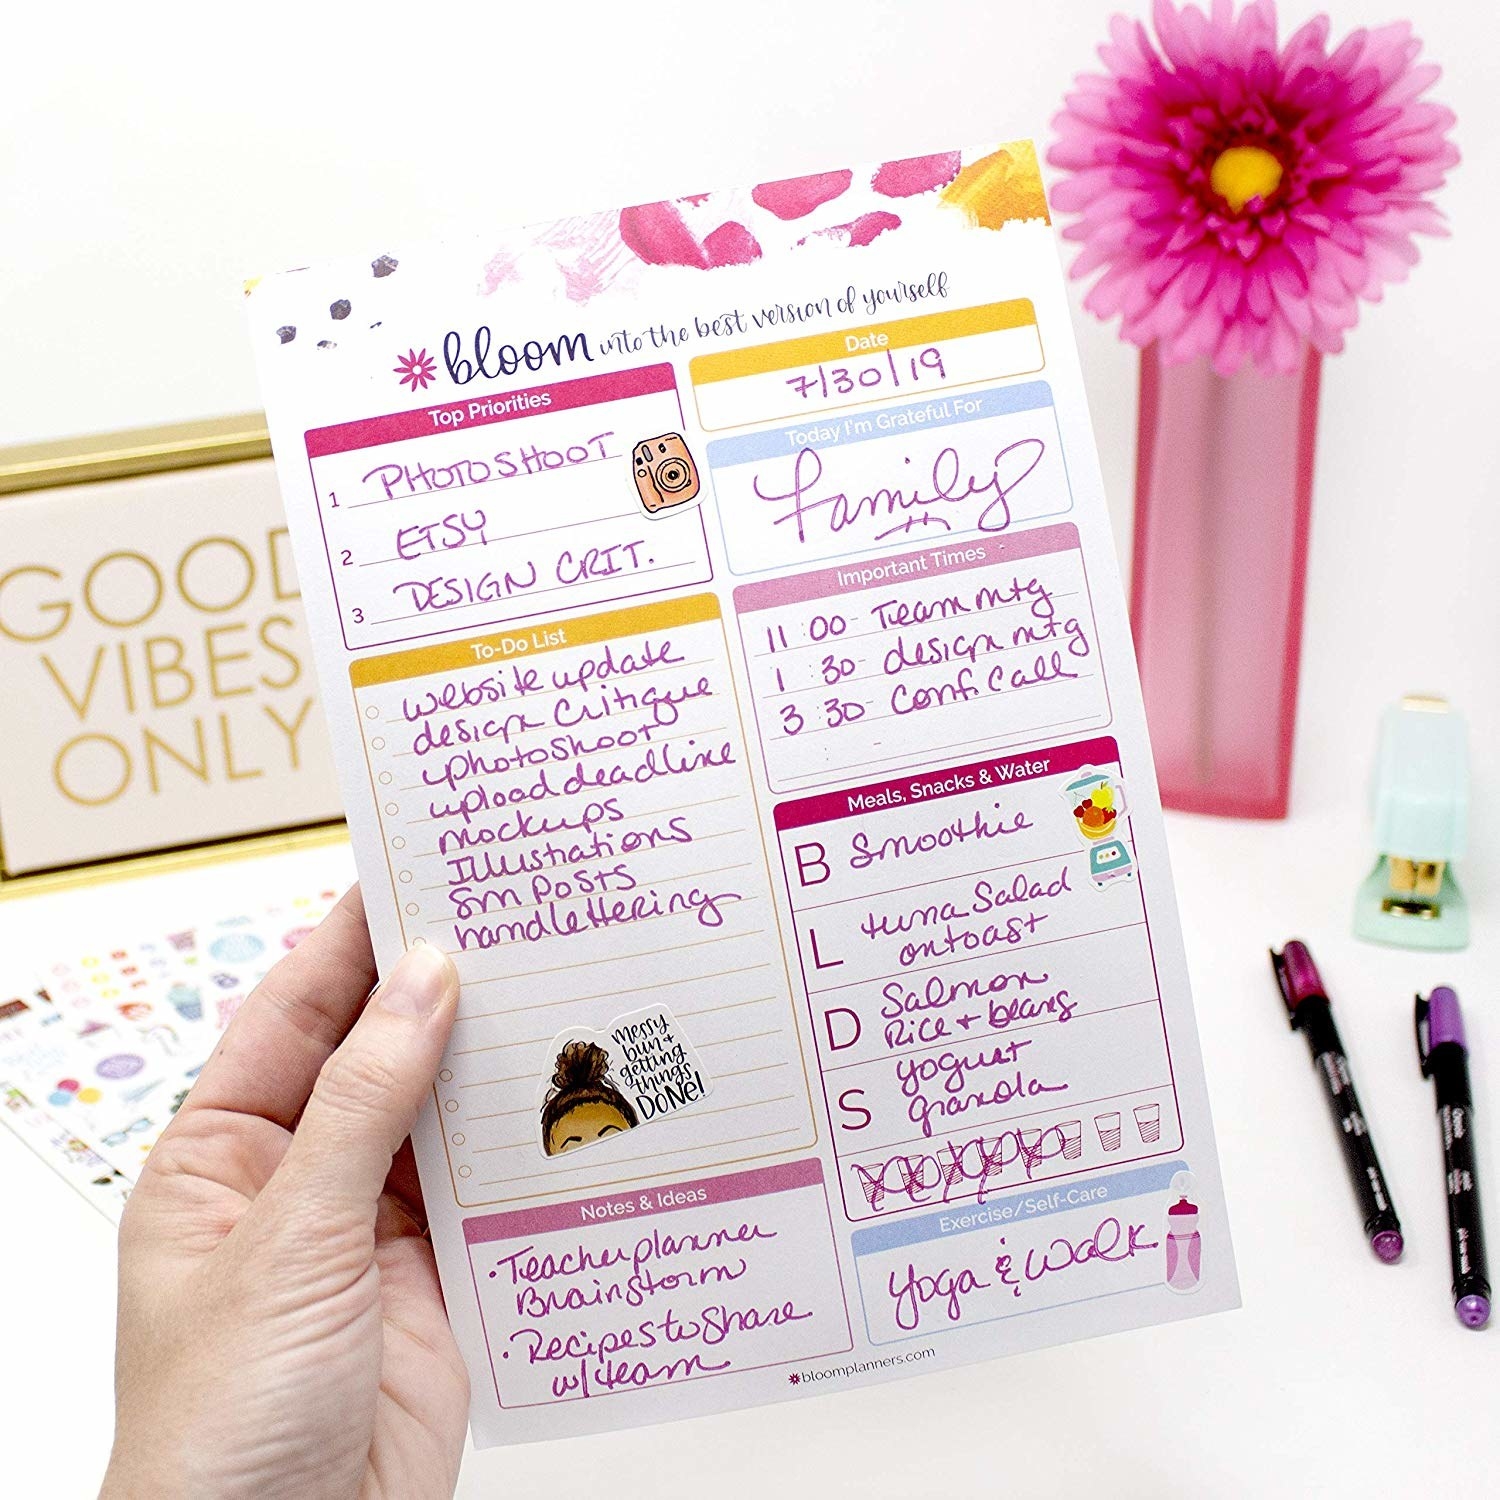 bloom into the best version of yourself
Top Priorities
1 PHOTOSHOOT
2 ETSY
3 DESIGN CRIT.
Date
7/30/19
Today I'm Grateful For
Family
Important Times
11:00- Team mtg
1:30- design mtg
3:30- Conf. Call
To-Do List
website update
design Critique
photoshoot
upload deadline
mockups
Illustrations
Sm Posts
handlettering
messy
bun +
getting
things
DONE!
Meals, Snacks & Water
B Smoothie
L tuna Salad
on toast
D Salmon
Rice + beans
S yogurt
granola
Notes & Ideas
• Teacher planner
Brainstorm
• Recipes to Share
w/ team
Exercise/Self-Care
Yoga & Walk
bloomplanners.com
GOOD
VIBES
ONLY